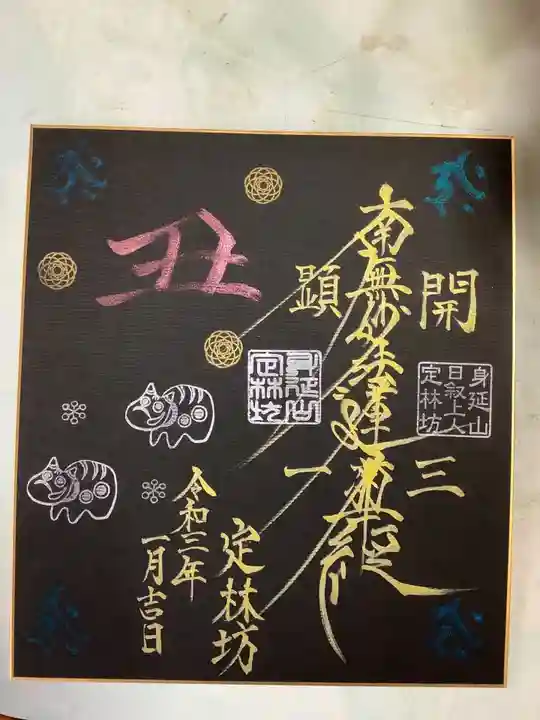 開
三
南無妙法蓮華経
顕
一
丑
身延山
日叙上人
定林坊
身延山
定林坊
定林坊
令和三年
一月吉日